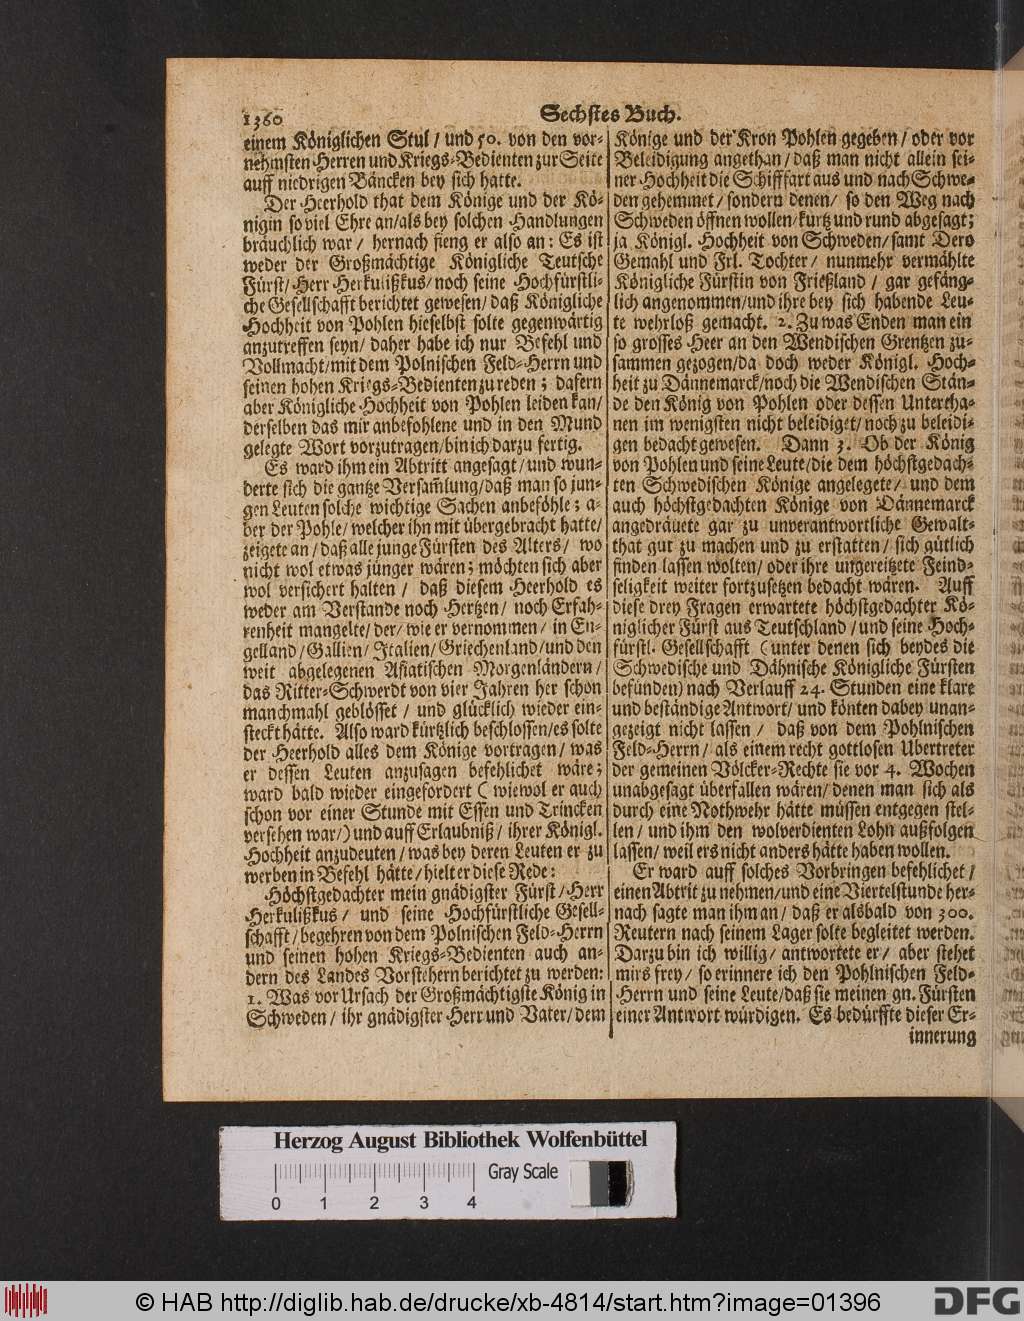 1360
Sechstes Buch.
einem Königlichen Stul / und 50. von den vor-
nehmsten Herren und Kriegs-Bedienten zur Seite
auff niedrigen Bäncken bey sich hatte.
Der Heerhold that dem Könige und der Kö-
nigin so viel Ehre an / als bey solchen Handlungen
bräuchlich war / hernach fieng er also an: Es ist
weder der Großmächtige Königliche Teutsche
Fürst / Herr Herkulißkus / noch seine Hochfürstli-
che Gesellschafft berichtet gewesen / daß Königliche
Hochheit von Pohlen hieselbst solte gegenwärtig
anzutreffen seyn / daher habe ich nur Befehl und
Vollmacht / mit dem Polnischen Feld-Herrn und
seinen hohen Kriegs-Bedienten zu reden; dafern
aber Königliche Hochheit von Pohlen leiden kan /
derselben das mir anbefohlene und in den Mund
gelegte Wort vorzutragen / bin ich darzu fertig.
Es ward ihm ein Abtritt angesagt / und wun-
derte sich die gantze Versam̃lung / daß man so jun-
gen Leuten solche wichtige Sachen anbeföhle; a-
ber der Pohle / welcher ihn mit übergebracht hatte /
zeigete an / daß alle junge Fürsten des Alters / wo
nicht wol etwas jünger wären; möchten sich aber
wol versichert halten / daß diesem Heerhold es
weder am Verstande noch Hertzen / noch Erfah-
renheit mangelte / der / wie er vernommen / in En-
gelland / Gallien / Italien / Griechenland / und den
weit abgelegenen Asiatischen Morgenländern /
das Ritter-Schwerdt von vier Jahren her schon
manchmahl geblösset / und glücklich wieder ein-
steckt hätte. Also ward kürtzlich beschlossen / es solte
der Heerhold alles dem Könige vortragen / was
er dessen Leuten anzusagen befehlichet wäre;
ward bald wieder eingefordert ( wiewol er auch
schon vor einer Stunde mit Essen und Trincken
versehen war / ) und auff Erlaubniß / ihrer Königl.
Hochheit anzudeuten / was bey deren Leuten er zu
werben in Befehl hätte / hielt er diese Rede:
Höchstgedachter mein gnädigster Fürst / Herr
Herkulißkus / und seine Hochfürstliche Gesell-
schafft / begehren von dem Polnischen Feld-Herrn
und seinen hohen Kriegs-Bedienten auch an-
dern des Landes Vorstehern berichtet zu werden:
1. Was vor Ursach der Großmächtigste König in
Schweden / ihr gnädigster Herr und Vater / dem
Könige und der Kron Pohlen gegeben / oder vor
Beleidigung angethan / daß man nicht allein sei-
ner Hochheit die Schifffart aus und nach Schwe-
den gehemmet / sondern denen / so den Weg nach
Schweden öffnen wollen / kurtz und rund abgesagt;
ja Königl. Hochheit von Schweden / samt Dero
Gemahl und Frl. Tochter / nunmehr vermählte
Königliche Fürstin von Frießland / gar gefäng-
lich angenommen / und ihre bey sich habende Leu-
te wehrloß gemacht. 2. Zu was Enden man ein
so grosses Heer an den Wendischen Grentzen zu-
sammen gezogen / da doch weder Königl. Hoch-
heit zu Dännemarck / noch die Wendischen Stän-
de den König von Pohlen oder dessen Untertha-
nen im wenigsten nicht beleidiget / noch zu beleidi-
gen bedacht gewesen. Dann 3. Ob der König
von Pohlen und seine Leute / die dem höchstgedach-
ten Schwedischen Könige angelegete / und dem
auch höchstgedachten Könige von Dännemarck
angedräuete gar zu unverantwortliche Gewalt-
that gut zu machen und zu erstatten / sich gütlich
finden lassen wolten / oder ihre ungereitzete Feind-
seligkeit weiter fortzusetzen bedacht wären. Auff
diese drey Fragen erwartete höchstgedachter Kö-
niglicher Fürst aus Teutschland / und seine Hoch-
fürstl. Gesellschafft ( unter denen sich beydes die
Schwedische und Dähnische Königliche Fürsten
befünden ) nach Verlauff 24. Stunden eine klare
und beständige Antwort / und könten dabey unan-
gezeigt nicht lassen / daß von dem Pohlnischen
Feld-Herrn / als einem recht gottlosen Ubertreter
der gemeinen Völcker-Rechte sie vor 4. Wochen
unabgesagt überfallen wären / denen man sich als
durch eine Nothwehr hätte müssen entgegen stel-
len / und ihm den wolverdienten Lohn außfolgen
lassen / weil ers nicht anders hätte haben wollen.
Er ward auff solches Vorbringen befehlichet /
einen Abtrit zu nehmen / und eine Viertelstunde her-
nach sagte man ihm an / daß er alsbald von 300.
Reutern nach seinem Lager solte begleitet werden.
Darzu bin ich willig / antwortete er / aber stehet
mirs frey / so erinnere ich den Pohlnischen Feld-
Herrn und seine Leute / daß sie meinen gn. Fürsten
einer Antwort würdigen. Es bedürffte dieser Er-
innerung
Herzog August Bibliothek Wolfenbüttel
Gray Scale
0 1 2 3 4
© HAB http://diglib.hab.de/drucke/xb-4814/start.htm?image=01396
DFG